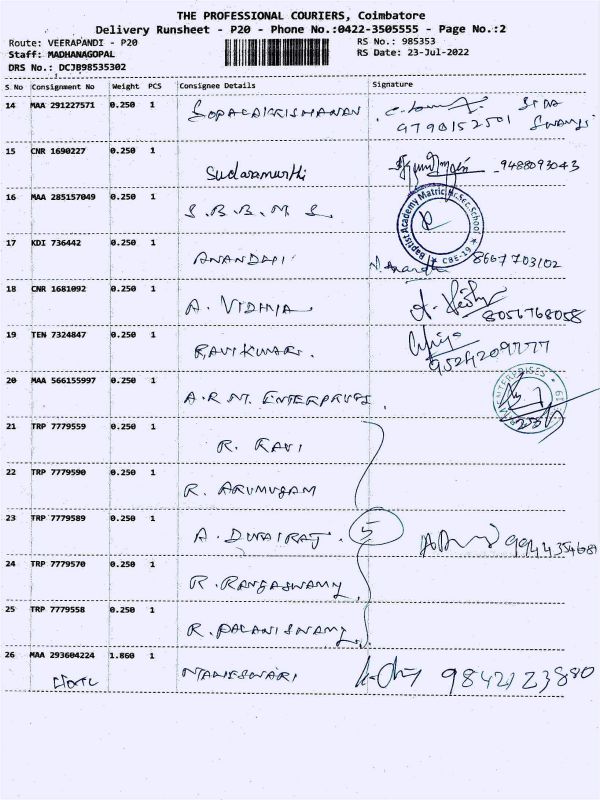 THE PROFESSIONAL COURIERS, Coimbatore
Delivery Runsheet - P20 - Phone No.:0422-3505555 - Page No.:2
Route: VEERAPANDI - P20
RS No.: 985353
Staff: MADHANAGOPAL
RS Date: 23-Jul-2022
DRS No.: DCJB98535302
S No Consignment No Weight PCS Consignee Details Signature
14 MAA 291227571 0.250 1 GOPALAKRISHANAN
9790152501
15 CNR 1690227 0.250 1 Sudaramurthi 9488093043
16 MAA 285157049 0.250 1 S.B.B.M.S
Baptist Academy Matric.Hr.Sec.School
* CBE-19 *
17 KDI 736442 0.250 1 ANANDHI 8667703102
18 CNR 1681092 0.250 1 A. VIDHIA 8056768058
19 TEN 7324847 0.250 1 RAVIKUMAR. 9524209777
20 MAA 566155997 0.250 1 A.R.M. ENTERPRISES
ENTERPRISES
21 TRP 7779559 0.250 1 R. RAVI
22 TRP 7779590 0.250 1 R. ARUMUGAM
23 TRP 7779589 0.250 1 A. DURAIRAJ. 5 9944354681
24 TRP 7779570 0.250 1 R. RANGASWAMY
25 TRP 7779558 0.250 1 R. PALANISWAMY
26 MAA 293604224 1.860 1 MAHESWARI 9842123880